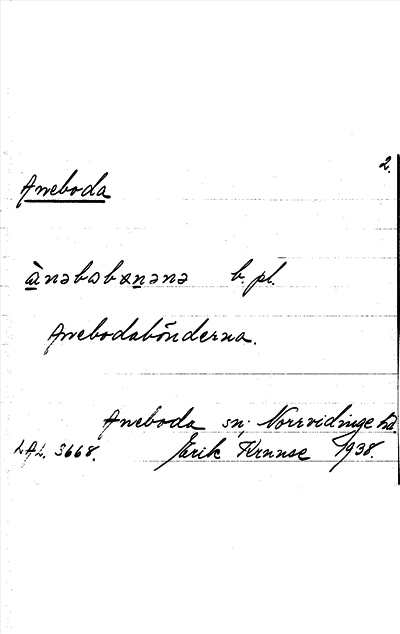 2.
Aneboda
ànəbɷbɷnənə b. pl.
Anebodabönderna.
Aneboda sn. Norrvidinge hd.
LAL. 3668. Erik Kruuse 1938.